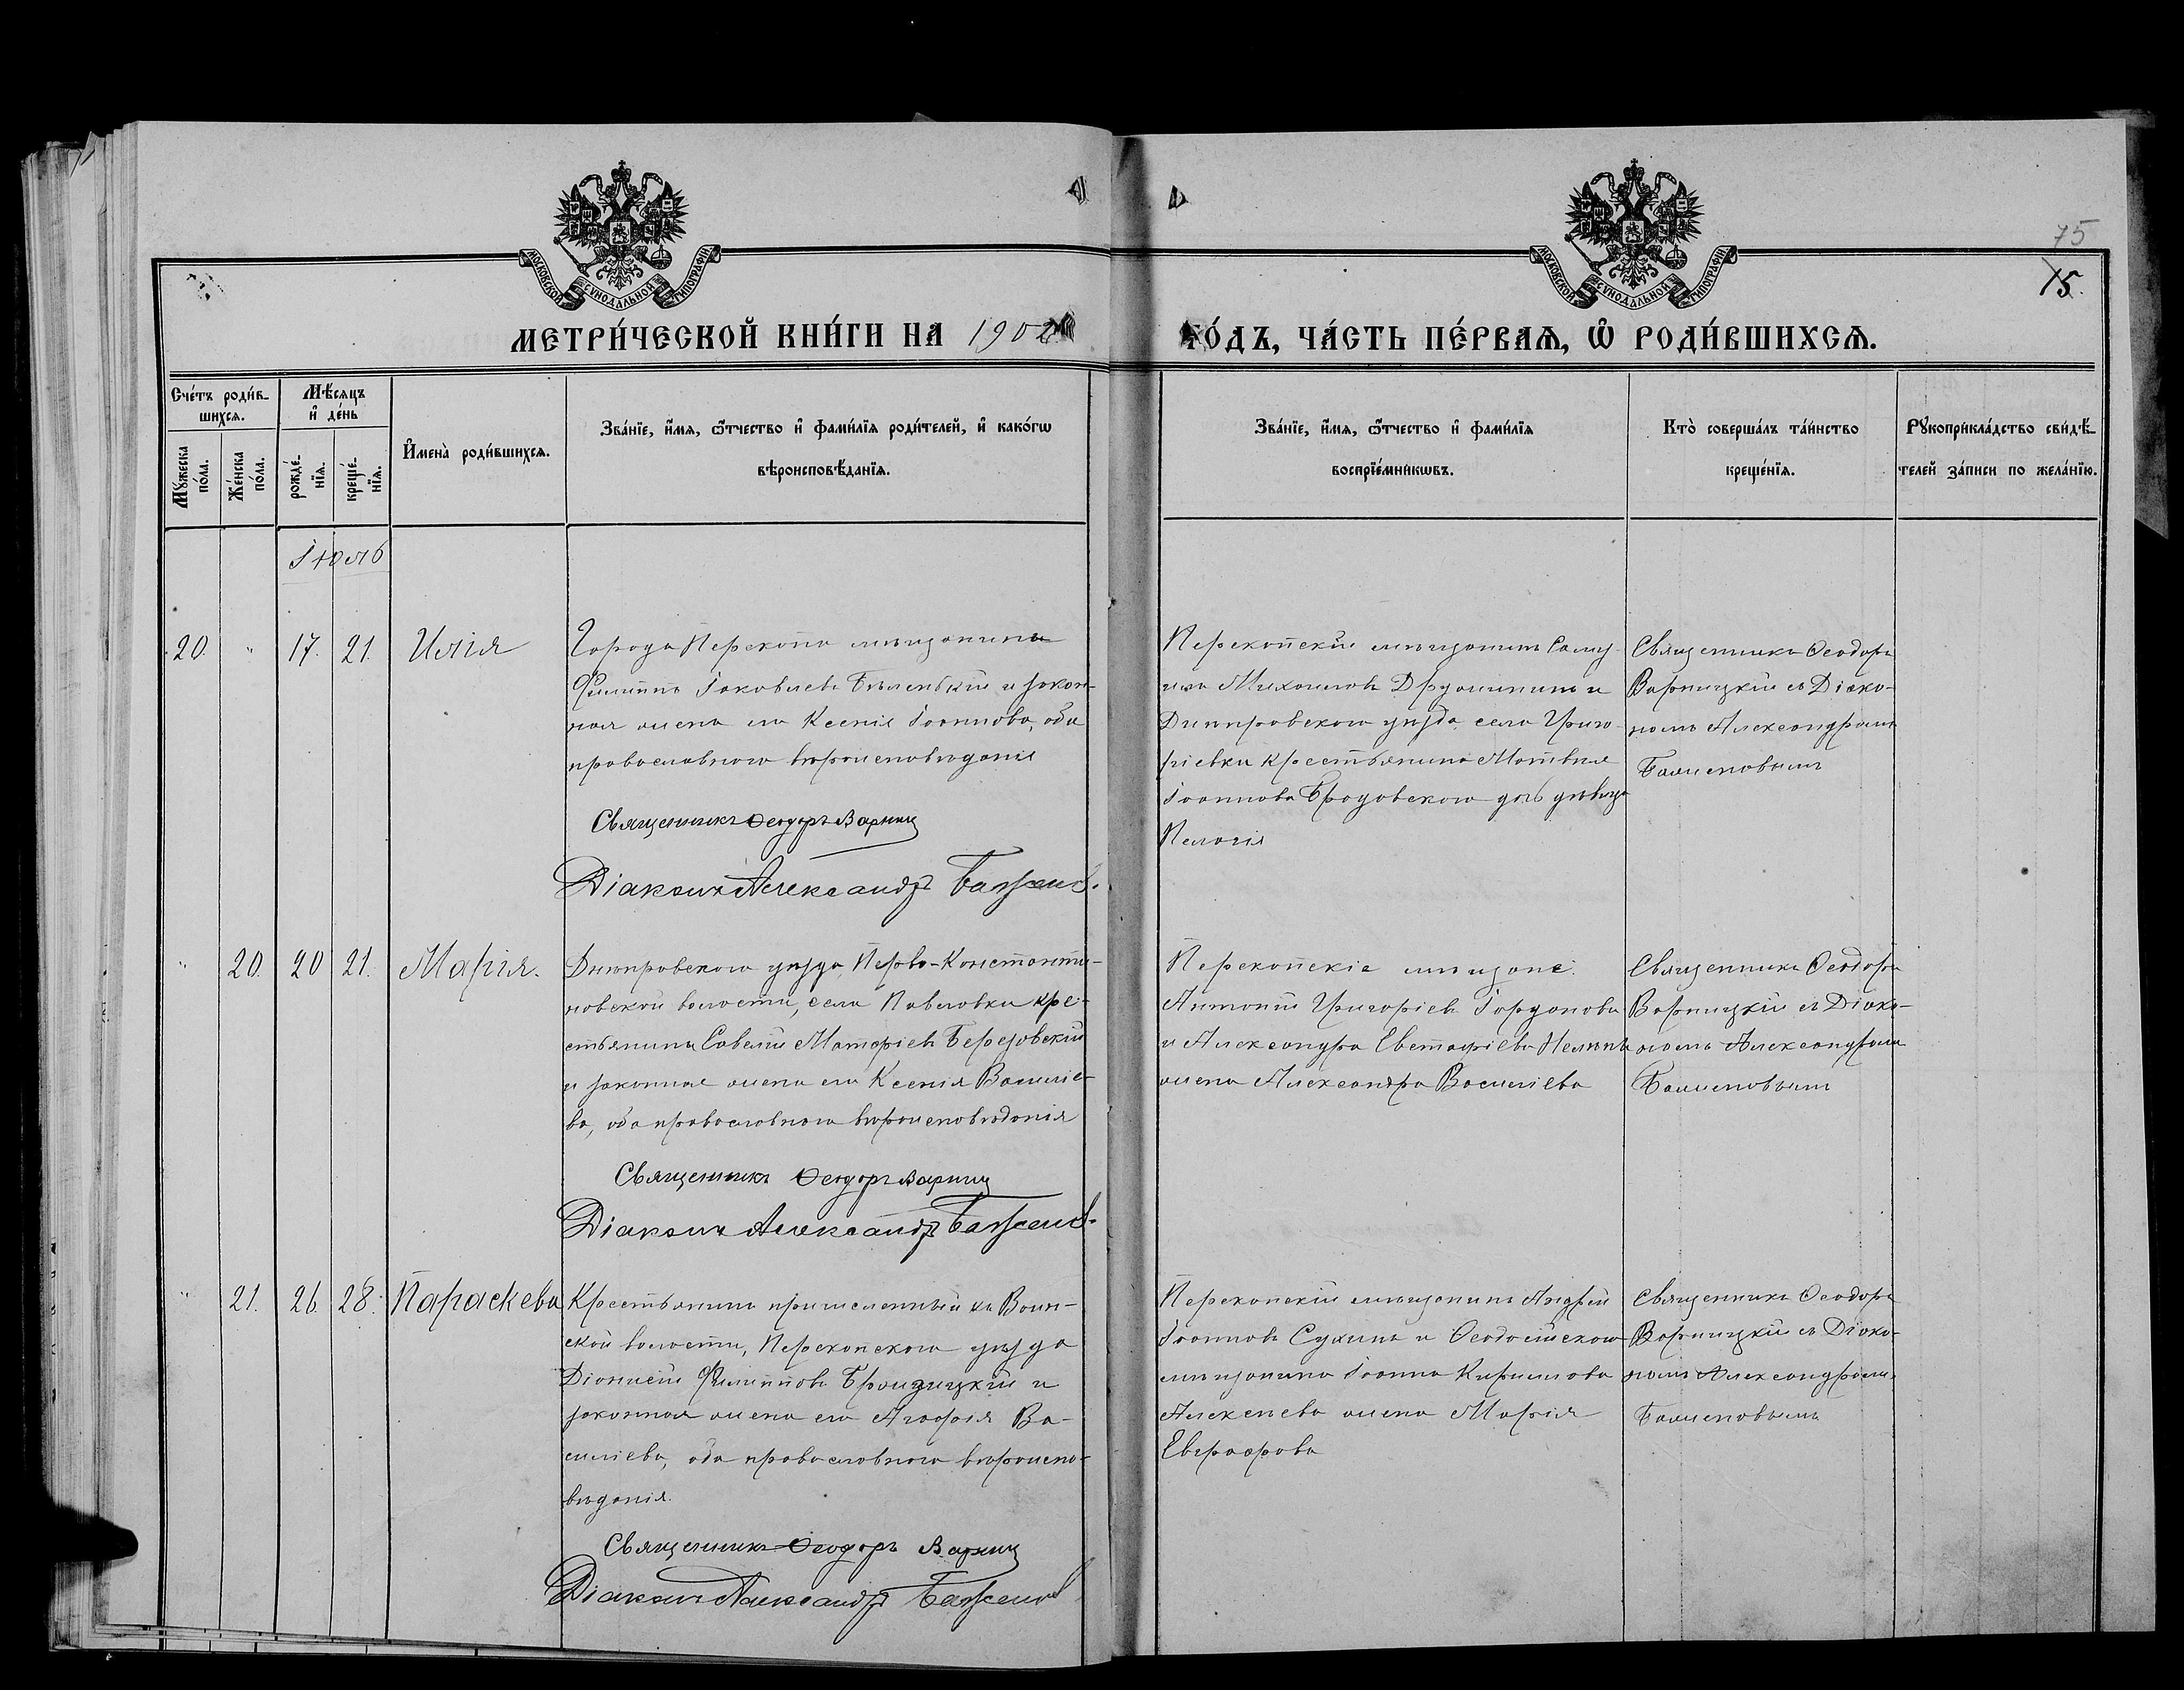 МОСКОВСКОЙ СѴНОДАЛЬНОЙ ТИПОГРАФІИ
МОСКОВСКОЙ СѴНОДАЛЬНОЙ ТИПОГРАФІИ
75
15.
МЕТРИ́ЧЕСКОЙ КНИ́ГИ НА 1902
ГО́ДЪ, ЧА́СТЬ ПЕ́РВАѦ, Ѡ҆ РОДИ́ВШИХСѦ.
Сче́тъ роди́в-
шихсѧ.
Мꙋжеска по́ла.
Же́нска по́ла.
Мѣ́сѧцъ
и҆ де́нь
рожде́-
нїѧ.
креще́-
нїѧ.
И҆мена̀ роди́вшихсѧ.
Зва́нїе, и҆́мѧ, ѻ҆́тчество и҆ фами́лїѧ роди́телей, и҆ како́гѡ
вѣроисповѣ́данїѧ.
Зва́нїе, и҆́мѧ, ѻ҆́тчество и҆ фами́лїѧ
воспрїе́мникѡвъ.
Кто̀ соверша́лъ та́инство
креще́нїѧ.
Рꙋкоприкла́дство свидѣ́-
телей за́писи по жела́нїю.
Іюль
20. " 17. 21. Илія
Города Перекопа мѣщанинъ
Филиппъ Іаковлевъ Бѣленькій и закон-
ная жена его Ксенія Іоаннова, оба
православнаго вѣроисповѣданія
Священникъ Ѳеодоръ Варниц
Діаконъ Александръ Баженовъ.
Перекопскій мѣщанинъ Саму-
илъ Михаиловъ Дружининъ и
Днѣпровскаго уѣзда села Григо-
ріевки крестьянина Матвѣя
Іоаннова Бродовскаго дочь дѣвица
Пелагія
Священникъ Ѳеодоръ
Варницкій съ Діако-
номъ Александромъ
Баженовымъ
" 20. 20 21. Марія.
Днѣпровскаго уѣзда Перво-Константи-
новской волости, села Павловки кре-
стьянинъ Савелій Матфіевъ Березовскій
и законная жена его Ксенія Василіе-
ва, оба православнаго вѣроисповѣданія
Священникъ Ѳеодоръ Варниц
Діаконъ Александръ Баженовъ.
Перекопскіе мѣщане:
Антоній Григоріевъ Іордановъ
и Александра Евстафіева
жена Александра Василіева
Священникъ Ѳеодоръ
Варницкій съ Діако-
номъ Александромъ
Баженовымъ
" 21. 26. 28. Параскева
Крестьянинъ причисленный къ Воин-
ской волости, Перекопскаго уѣзда
Діонисій Филипповъ и
законная жена его Агафія Ва-
силіева, оба православнаго вѣроиспо-
вѣданія.
Священникъ Ѳеодоръ Варниц
Діаконъ Александръ Баженовъ
Перекопскій мѣщанинъ Андрей
Іоанновъ Сухинъ и Ѳеодосійскаго
мѣщанина Іоанна Кириллова
Алексѣева жена Марія
Евграфова
Священникъ Ѳеодоръ
Варницкій съ Діако-
номъ Александромъ
Баженовымъ